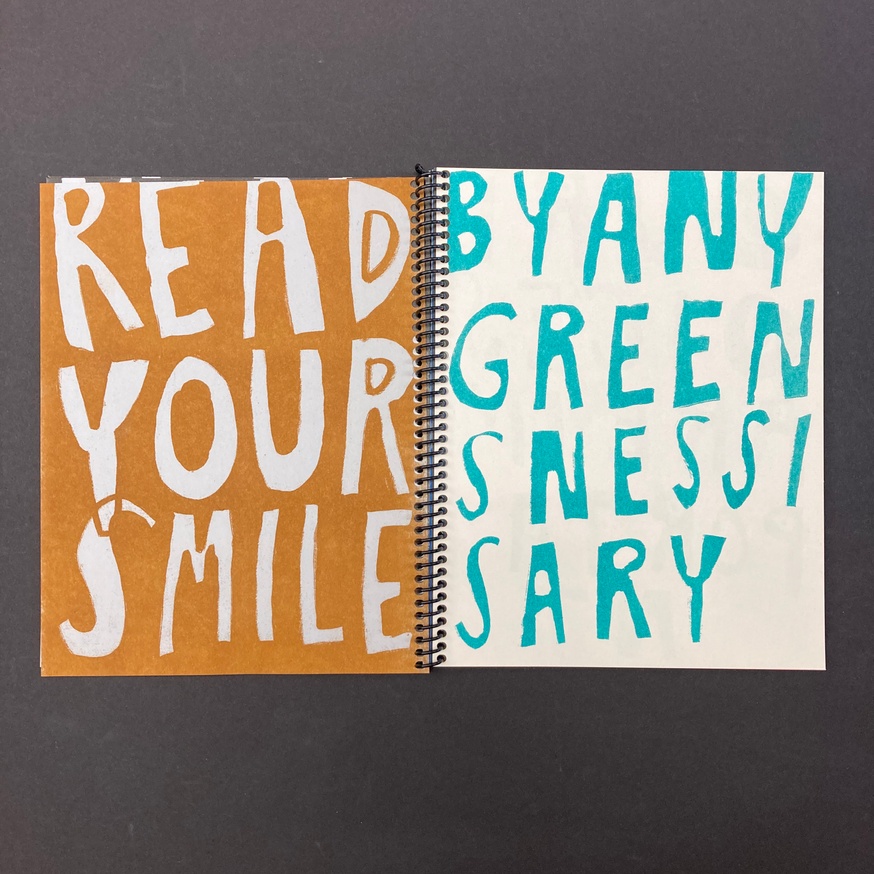 READ
YOUR
SMILE
BY ANY
GREEN
SNESSI
SARY